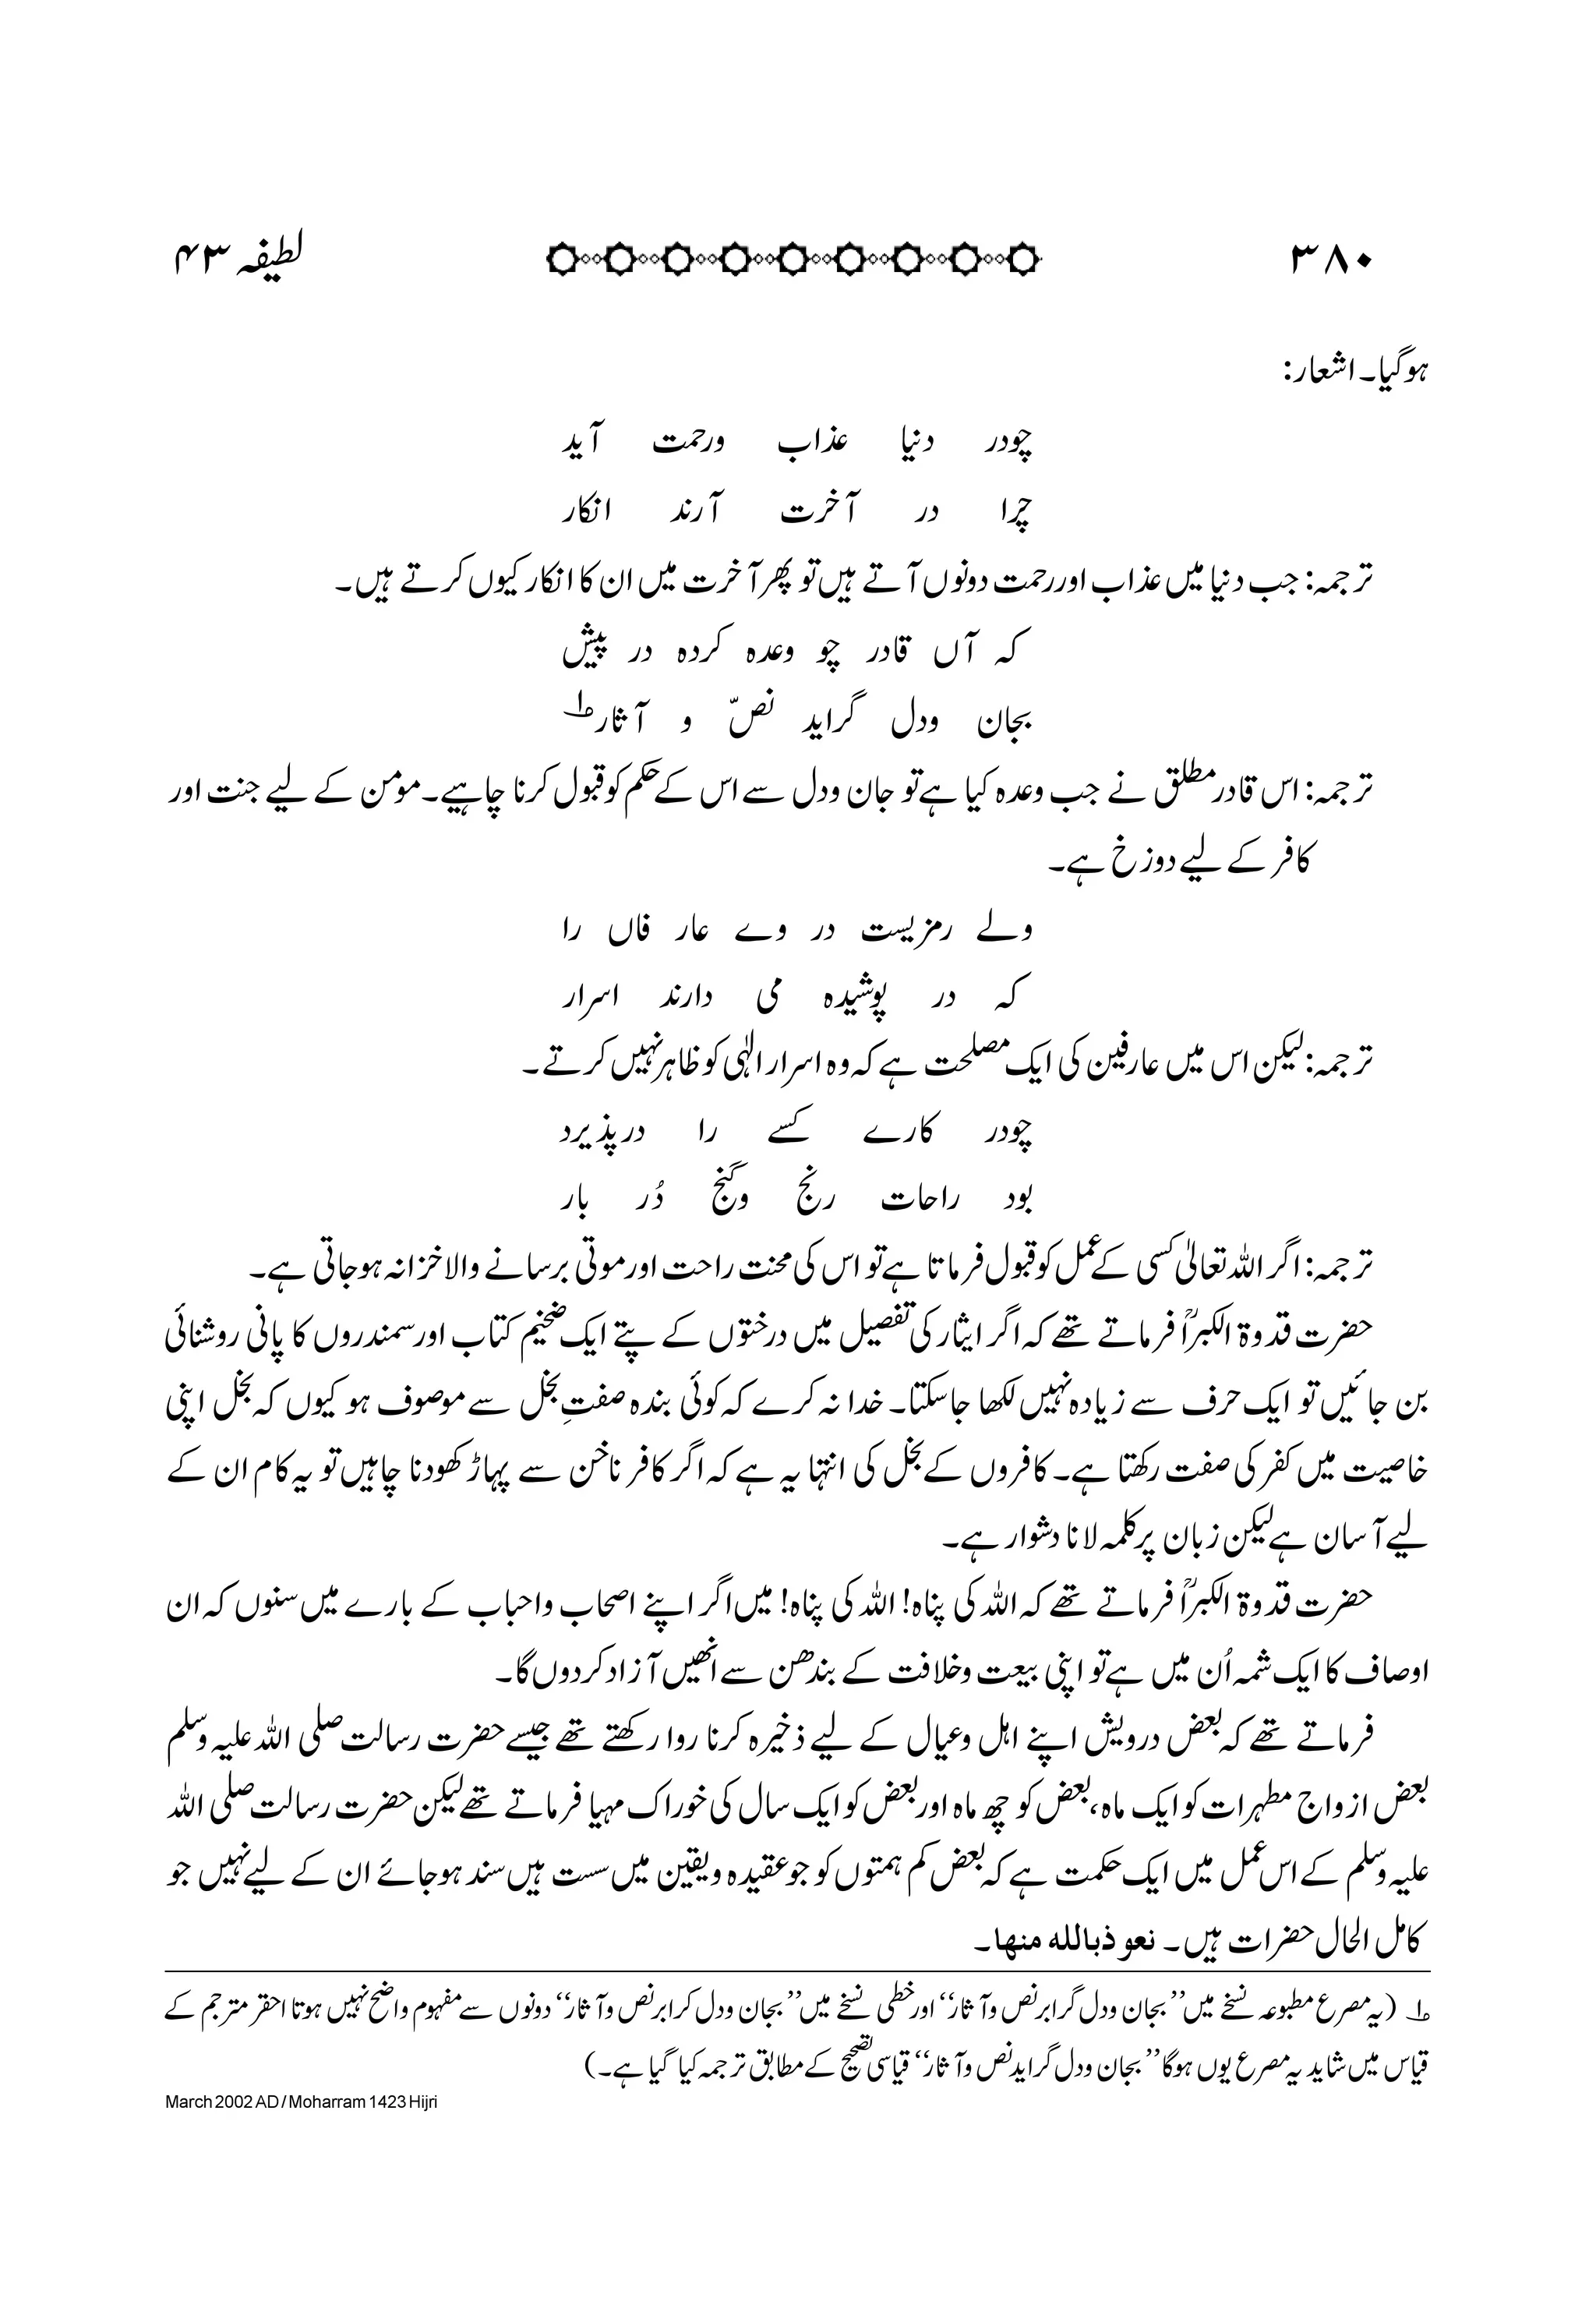 ۳۸۰ لطیفہ ۴۳
ہوگیا۔ اشعار:
چودر دنیا عذاب ورحمت آید
چرا در آخرت آرند انکار
ترجمہ: جب دنیا میں عذاب اور رحمت دونوں آتے ہیں تو پھر آخرت میں ان کا انکار کیوں کرتے ہیں۔
کہ آں قادر چو وعدہ کردہ در پیش
بجان ودل گراید نصّ و آثار ؎۱
ترجمہ: اس قادر مطلق نے جب وعدہ کیا ہے تو جان ودل سے اس کے حکم کو قبول کرنا چاہیے۔ مومن کے لیے جنت اور
کافر کے لیے دوزخ ہے۔
ولے رمزیست در وے عار فاں را
کہ در پوشیدہ می دارند اسرار
ترجمہ: لیکن اس میں عارفین کی ایک مصلحت ہے کہ وہ اسرار الٰہی کو ظاہر نہیں کرتے۔
چودر کارے کسے را درپذیرد
بود راحات رنج وگنج دُر بار
ترجمہ: اگر اللہ تعالیٰ کسی کے عمل کو قبول فرماتا ہے تو اس کی محنت راحت اور موتی برسانے والا خزانہ ہوجاتی ہے۔
حضرت قدوۃ الکبراؒ فرماتے تھے کہ اگر ایثار کی تفصیل میں درختوں کے پتے ایک ضخیم کتاب اور سمندروں کا پانی روشنائی
بن جائیں تو ایک حرف سے زیادہ نہیں لکھا جاسکتا۔ خدا نہ کرے کہ کوئی بندہ صفتِ بخل سے موصوف ہو کیوں کہ بخل اپنی
خاصیت میں کفر کی صفت رکھتا ہے۔ کافروں کے بخل کی انتہا یہ ہے کہ اگر کافر ناخن سے پہاڑ کھودنا چاہیں تو یہ کام ان کے
لیے آسان ہے لیکن زبان پر کلمہ لانا دشوار ہے۔
حضرت قدوۃ الکبراؒ فرماتے تھے کہ اللہ کی پناہ! اللہ کی پناہ! میں اگر اپنے اصحاب واحباب کے بارے میں سنوں کہ ان
اوصاف کا ایک شمہ اُن میں ہے تو اپنی بیعت وخلافت کے بندھن سے انھیں آزاد کردوں گا۔
فرماتے تھے کہ بعض درویش اپنے اہل وعیال کے لیے ذخیرہ کرنا روا رکھتے تھے جیسے حضرت رسالت صلی اللہ علیہ وسلم
بعض ازواج مطہرات کو ایک ماہ، بعض کو چھ ماہ اور بعض کو ایک سال کی خوراک مہیا فرماتے تھے لیکن حضرت رسالت صلی اللہ
علیہ وسلم کے اس عمل میں ایک حکمت ہے کہ بعض کم ہمتوں کو جو عقیدہ ویقین میں سست ہیں سند ہوجائے ان کے لیے نہیں جو
کامل الحال حضرات ہیں۔ نعو ذبالله منها۔
؎۱ (یہ مصرع مطبوعہ نسخے میں ’’بجان ودل گرابرنص وآثار‘‘ اور خطی نسخے میں ’’بجان ودل کرابرنص وآثار‘‘ دونوں سے مفہوم واضح نہیں ہوتا احقر مترجم کے
قیاس میں شاید یہ مصرع یوں ہوگا ’’بجان ودل گراید نص وآثار‘‘ قیاسی تصحیح کے مطابق ترجمہ کیا گیا ہے۔)
March 2002 AD / Moharram 1423 Hijri